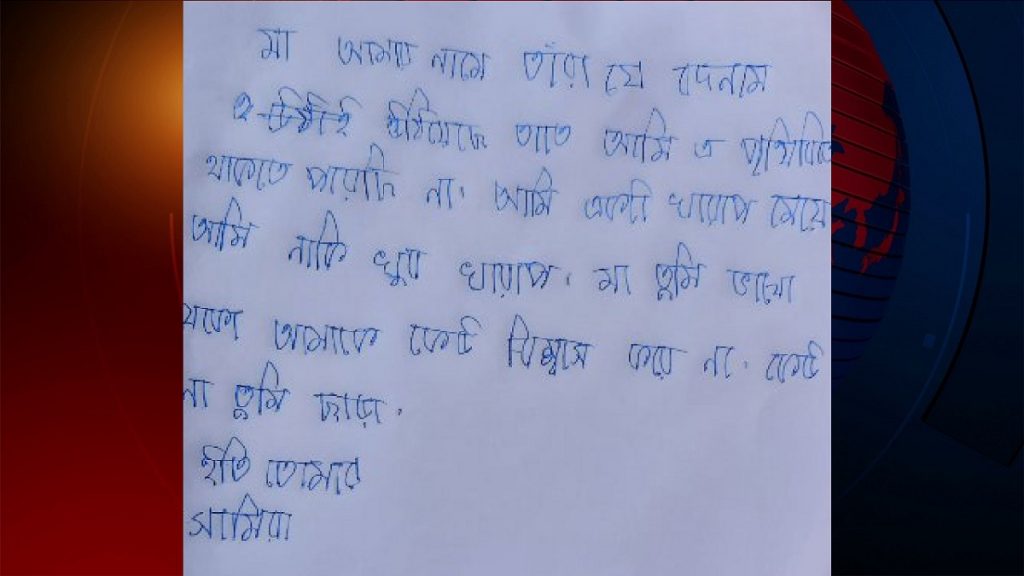 মা আমার নামে তাঁরা যে বদনাম
উঠিয়েছে তাতে আমি এ পৃথিবিতে
থাকতে পারছি না। আমি একটা খারাপ মেয়ে
আমি নাকি খুব খারাপ। মা তুমি ভালো
থেকো আমাকে কেউ বিশ্বাস করে না। কেউ
না তুমি ছাড়া।
ইতি তোমার
সামিয়া